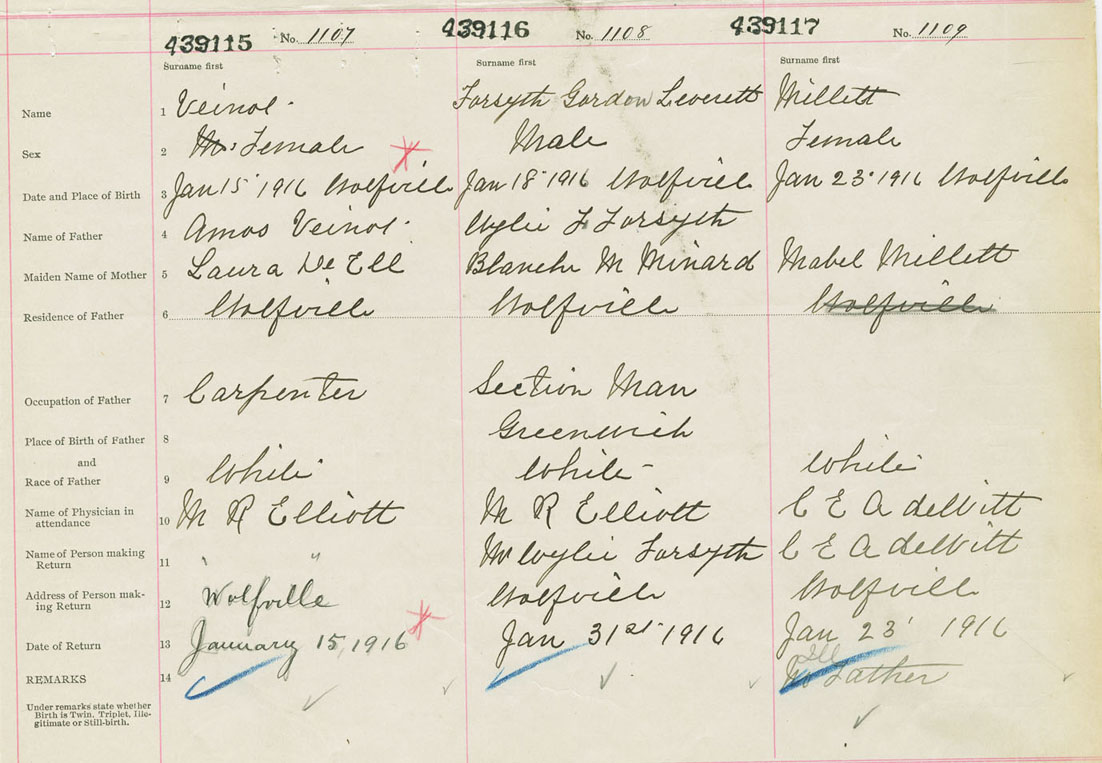 439115 No. 1107 439116 No. 1108 439117 No. 1109
Surname first Surname first Surname first
Name 1 Veinot Forsyth Gordon Leverett Millett
Sex 2 Female Male Female
Date and Place of Birth 3 Jan 15 1916 Wolfville Jan 18 1916 Wolfville Jan 23 1916 Wolfville
Name of Father 4 Amos Veinot Wylie F Forsyth
Maiden Name of Mother 5 Laura De Ell Blanche M Minard Mabel Millett
Residence of Father 6 Wolfville Wolfville Wolfville
Occupation of Father 7 Carpenter Section Man
Place of Birth of Father 8 Greenwich
and
Race of Father 9 White White White
Name of Physician in
attendance 10 M R Elliott M R Elliott C E A deWitt
Name of Person making
Return 11 " " Wylie Forsyth C E A deWitt
Address of Person mak-
ing Return 12 Wolfville Wolfville Wolfville
Date of Return 13 January 15, 1916 Jan 31st 1916 Jan 23 1916
REMARKS 14 Ill No Father
Under remarks state whether
Birth is Twin, Triplet, Ille-
gitimate or Still-birth.